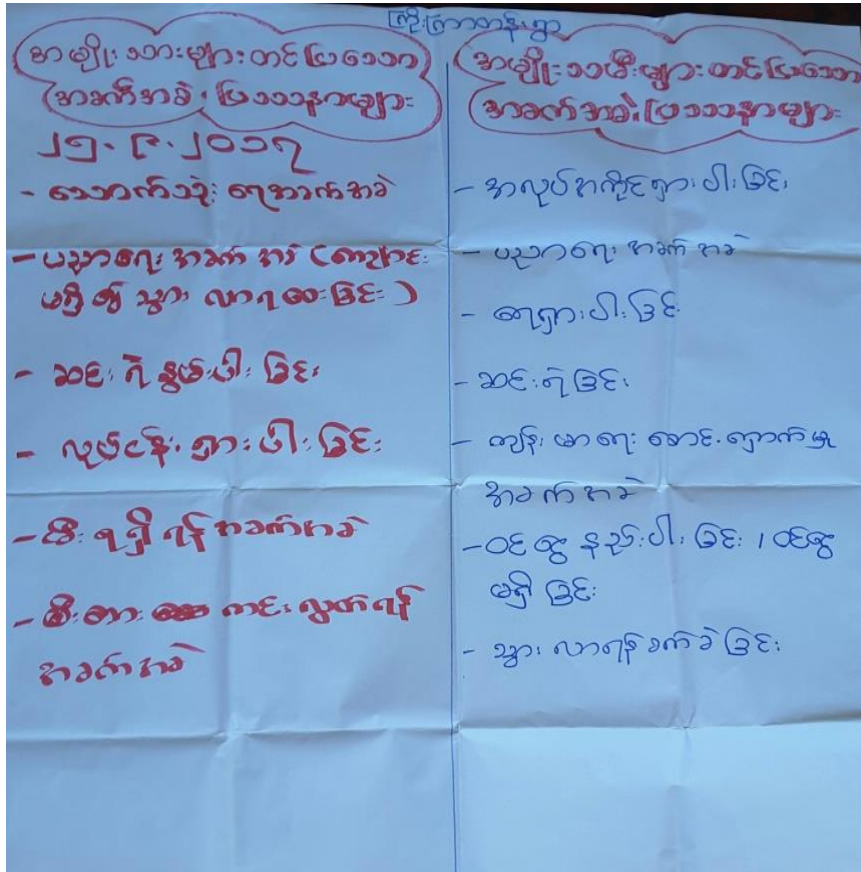 ကြိုးကြာတန်းရွာ
အမျိုးသားများတင်ပြသော
အခက်အခဲ၊ ပြဿနာများ
၂၅.၉.၂၀၁၇
- သောက်သုံးရေအခက်အခဲ
- ပညာရေး အခက်အခဲ (ကျောင်း
မရှိ၍ သွားလာရဝေးခြင်း)
- ဆင်းရဲနွမ်းပါးခြင်း
- လုပ်ငန်းရှားပါးခြင်း
- မီးရရှိရန် အခက်အခဲ
- မီးဘေးကင်းလွတ်ရန်
အခက်အခဲ
အမျိုးသမီးများတင်ပြသော
အခက်အခဲ၊ ပြဿနာများ
- အလုပ်အကိုင်ရှားပါးခြင်း
- ပညာရေး အခက်အခဲ
- ရေရှားပါးခြင်း
- ဆင်းရဲခြင်း
- ကျန်းမာရေးစောင့်ရှောက်မှု
အခက်အခဲ
- ဝင်ငွေနည်းပါးခြင်း / ဝင်ငွေ
မရှိခြင်း
- သွားလာရန်ခက်ခဲခြင်း